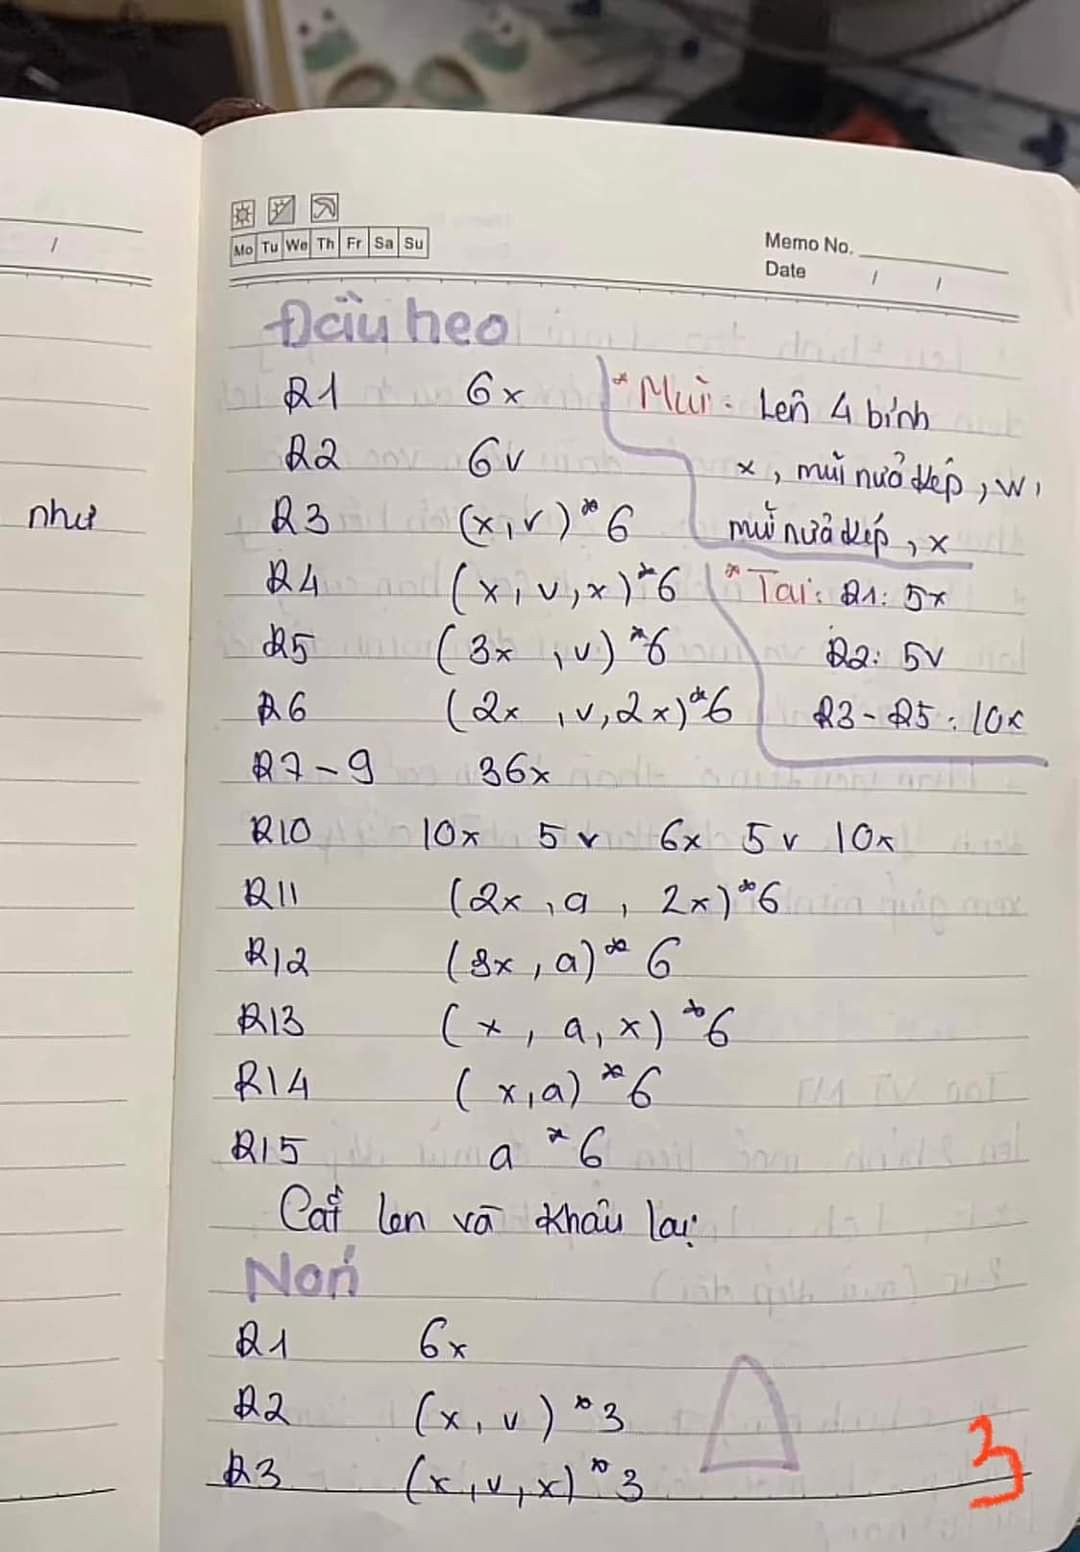 Mo Tu We Th Fr Sa Su
Memo No.
Date / /
/
như
Đầu heo
R1 6x
R2 6v
R3 (x, v) * 6
R4 (x, v, x) * 6
R5 (3x, v) * 6
R6 (2x, v, 2x) * 6
R7 - 9 36x
R10 10x 5v 6x 5v 10x
R11 (2x, a, 2x) * 6
R12 (3x, a) * 6
R13 (x, a, x) * 6
R14 (x, a) * 6
R15 a * 6
Cắt len và khâu lại
* Mũi: Lên 4 bính
x, mũi nửa kép, w,
mũi nửa kép, x
* Tai: R1: 5x
R2: 5v
R3 - R5: 10x
Nón
R1 6x
R2 (x, v) * 3
R3 (x, v, x) * 3
3